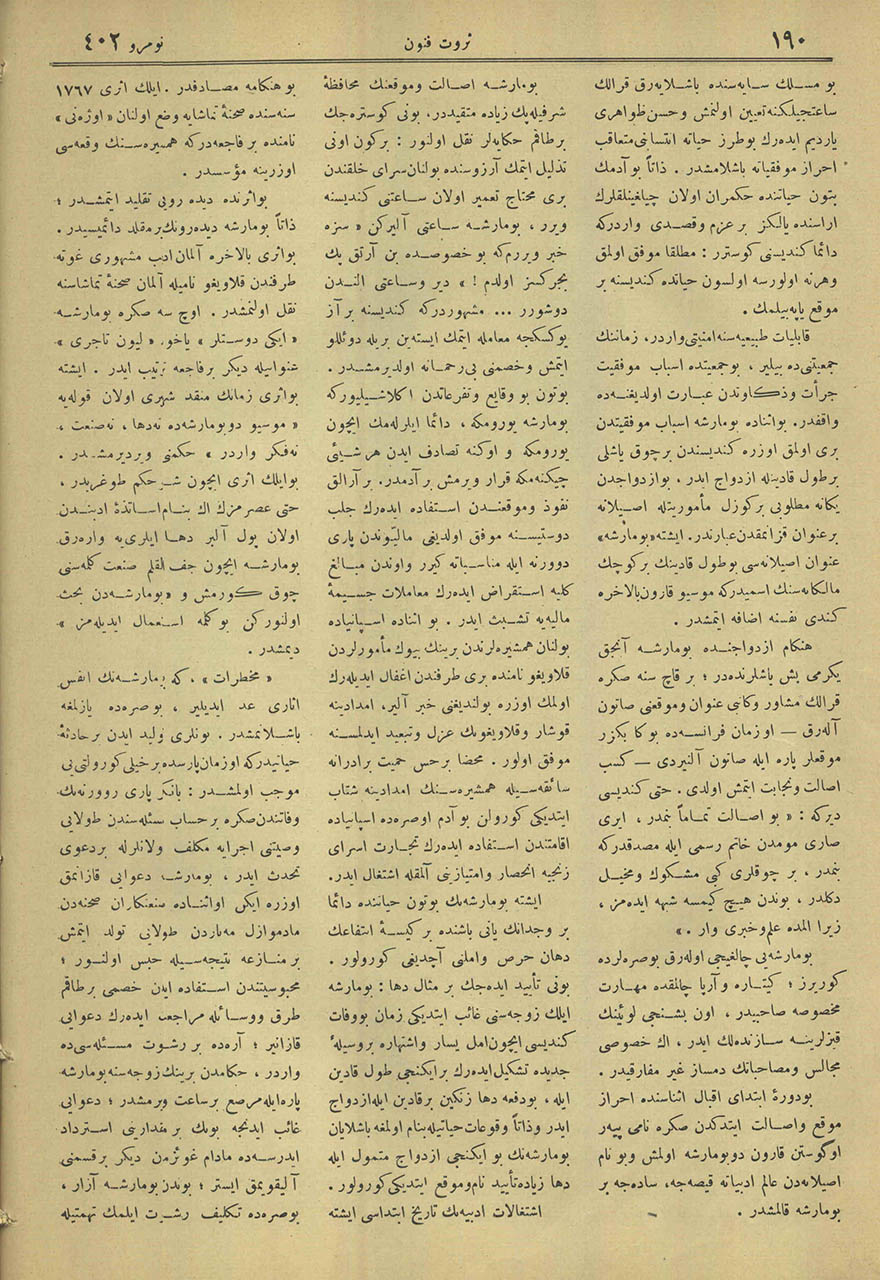 ١٩٠
ثروت فنون
نومرو ٤٠٢
بو مسلك سايه‌سنده باشلايه‌رق قرالك
ساعتجيلكنه تعيين اولنمش وحسن ظواهرى
يارديم ايده‌رك بوطرز حياته انتسابنى متعاقب
احراز موفقيانه باشلامشدر . ذاتاً بوآدمك
بتون حياتنده حكمران اولان چيلغينلقلرك
اراسنده يالكز بر عزم وقصدى واردركه
دائما كنديسنى كوسترر : مطلقا موفق اولمق
وهرنه اولورسه اولسون حياتده كنديسنه بر
موقع ياپه‌بيلمك .
قابليات طبيعيه‌سنه امنيتى واردر، زماننك
جمعيتنى‌ده بيلير ، بوجمعيتده اسباب موفقيت
جرأت وذكاوتدن عبارت اولديغنه‌ده
واقفدر. بواثناده بومارشه اسباب موفقيتدن
برى اولمق اوزره كنديسندن برچوق ياشلى
برطول قادينله ازدواج ايدر ، بوازدواجدن
يكانه مطلوبى بركوزل مأموريتله اصيلانه
برعنوان قزانمقدن عبارتدر. ايشته «بومارشه»
عنوان اصيلانه‌سى بوطول قادينك بركوچك
مالكانه‌سنك اسميدركه موسيو قارون بالاخره
كندى نفسنه اضافه ايتمشدر .
هنكام ازدواجنده بومارشه آنجق
يكرمى بش ياشلرنده‌در ؛ بر قاچ سنه صكره
قرالك مشاور وكاتبى عنوان وموقعنى صاتون
آله‌رق — اوزمان فرانسه‌ده بوكا بكزر
موقعلر پاره ايله صاتون آلنيردى — كسب
اصالت ونجابت ايتمش اولدى . حتى كنديسى
ديركه : « بو اصالت تماماً بنمدر ، ايرى
صارى مومدن خاتم رسمى ايله مصدقدركه
بنمدر ، بر چوقلرى كبى مشكوك ومخيل
دكلدر ، بوندن هيچ كيمسه شبهه ايده‌مز ،
زيرا المده علم‌وخبرى وار . »
بومارشه‌يى چالغيجى اوله‌رق بوصره‌لرده
كوررز ؛ كيتاره وآرپا چالمقده مهارت
مخصوصه صاحبيدر ، اون بشنجى لوئينك
قيزلرينه سازنده‌لك ايدر ، اك خصوصى
مجالس ومصاحباتك دمساز غير مفارقيدر .
بودورۀ ابتداى اقبال اثناسنده احراز
موقع واصالت ايتدكدن صكره نامى پيه‌ر
اوگوستن قارون دوبومارشه اولمش وبو نام
اصيلانه‌دن عالم ادبياته قيصه‌جه ، ساده‌جه بر
بومارشه قالمشدر .
بومارشه اصالت وموقعنك محافظۀ
شرفيله پك زياده متقيددر، بونى كوستره‌جك
برطاقم حكايه‌لر نقل اولنور : بركون اونى
تذليل ايتمك آرزوسنده بولنان سراى خلقندن
برى محتاج تعمير اولان ساعتى كنديسنه
ويرر ، بومارشه ساعتى آليركن « سزه
خبر ويررم كه بو خصوصده بن آرتق پك
بجركسز اولدم ! » دير وساعتى النـدن
دوشورر ... مشهوردركه كنديسنه برآز
يوكسكجه معامله ايتمك ايسته‌ين بريله دوئللو
ايتمش وخصمنى بى‌رحمانه اولديرمشدر .
بوتون بو وقايع وتفرعاتدن اكلاشيليوركه
بومارشه يورومكه ، دائما ايلرله‌مك ايچون
يورومكه و اوكنه تصادف ايدن هر شيئى
چيكنه‌مكه قرار ويرمش برآدمدر. برآرالق
نفوذ وموقعندن استفاده ايده‌رك جلب
دوستيسنه موفق اولديغى ماليوندن پارى
دوورنه ايله مناسباته كيرر واوندن مبالغ
كليه استقراض ايده‌رك معاملات جسيمۀ
ماليه‌يه تشبث ايدر . بو اثناده اسپانياده
بولنان همشيره‌لرندن برينك بيوك مأمورلردن
قلاويغو نامنده برى طرفندن اغفال ايديله‌رك
اولمك اوزره بولنديغنى خبر آلير، امدادينه
قوشار وقلاويغونك عزل وتبعيد ايدلمسنه
موفق اولور . محضا برحس حميت برادرانه
سائقه‌سيله همشيره‌سنك امدادينه شتاب
ايتديكى كورولن بو آدم اوصره‌ده اسپانياده
اقامتندن استفاده ايده‌رك تجارت اسراى
زنجيه انحصار وامتيازينى آلمقله اشتغال ايدر.
ايشته بومارشه‌نك بوتون حياتنده دائما
بر وجدانك يانى باشنده بركيسۀ انتفاعك
دهان حرص واملنى آچديغى كورولور .
بونى تأييد ايده‌جك بر مثال دها : بومارشه
ايلك زوجه‌سنى غائب ايتديكى زمان بووفات
كنديسى ايچون امل يسار واشتهاره بروسيلۀ
جديده تشكيل ايده‌رك برايكنجى طول قادين
ايله ، بودفعه دها زنكين برقادين ايله ازدواج
ايدر وذاتاً وقوعات حياتيله بنام اولمغه باشلايان
بومارشه‌نك بو ايكنجى ازدواج متمول ايله
دها زياده تأييد نام‌وموقع ايتديكى كورولور .
اشتغالات ادبيه‌نك تاريخ ابتداسى ايشته
بوهنكامه مصـادفدر . ايلك اثرى ١٧٦٧
سنه‌سنده صحنۀ تماشايه وضع اولنان « اوژه‌نى »
نامنده بر فاجعه‌دركه همشيره‌سنك وقعه‌سى
اوزرينه مؤسسدر .
بواثرنده ديده رويى تقليد ايتمشدر ؛
ذاتاً بومارشه ديده‌رونك بر مقلد دائميسيدر.
بواثرى بالاخره آلمان ادب مشهورى غوته
طرفندن قلاويغو ناميله آلمان صحنۀ تماشاسنه
نقل اولنمشدر . اوچ سه صكره بومارشه
« ايكى دوستلر » ياخود « ليون تاجرى »
عنوانيله ديگر برفاجعه ترتيب ايدر . ايشته
بواثرى زمانك منقد شهيرى اولان قوله‌يه
« موسيو دوبومارشه‌ده نه‌دها ، نه‌صنعت ،
نه‌فكر واردر » حكمنى ويرديرمشدر .
بوايلك اثرى ايچون شو حكم طوغريدر ،
حتى عصرمزك اك بنام اساتذۀ ادبندن
اولان پول آلبر دها ايلرى‌يه واره‌رق
بومارشه ايچون جف القلم صنعت كله‌سنى
چوق كورمش و « بومارشه‌دن بحث
اولنوركن بوكلمه استعمال ايديله‌مز »
ديمشدر .
« مخطرات » ، كه بومارشه‌نك انفس
آثارى عد ايديلير ، بوصره‌ده يازلمغه
باشلانمشدر . بونلرى توليد ايدن برحادثۀ
حياتيدركه اوزمان پارسده برخيلى كورولتى‌يى
موجب اولمشدر : بانكر پارى دوورنه‌نك
وفاتندن صكره برحساب مسئله‌سندن طولايى
وصيتنى اجرايه مكلف ولانلرله بردعوى
تحدث ايدر ، بومارشه دعوايى قازانمق
اوزره ايكن اواثناده صنعتكاران صحنه‌دن
مادموازل مه‌ناردن طولايى تولد ايتمش
برمنازعه نتيجه‌سيله حبس اولنور ؛
محبوسيتندن استفاده ايدن خصمى برطاقم
طرق ووسائله مراجعت ايده‌رك دعوايى
قازانير ؛ آره‌ده بر رشوت مسئله‌سى‌ده
واردر ، حكامدن برينك زوجه‌سنه بومارشه
پاره‌ايله مرصع بر ساعت ويرمشدر ؛ دعوايى
غائب ايدنجه بونك برمقدارينى استرداد
ايدرسه‌ده مادام غوئزمن ديكر برقسمنى
آليقويمق ايستر ؛ بوندن بومارشه آزار ،
بوصره‌ده تكليف رشوت ايلمك تهمتيله